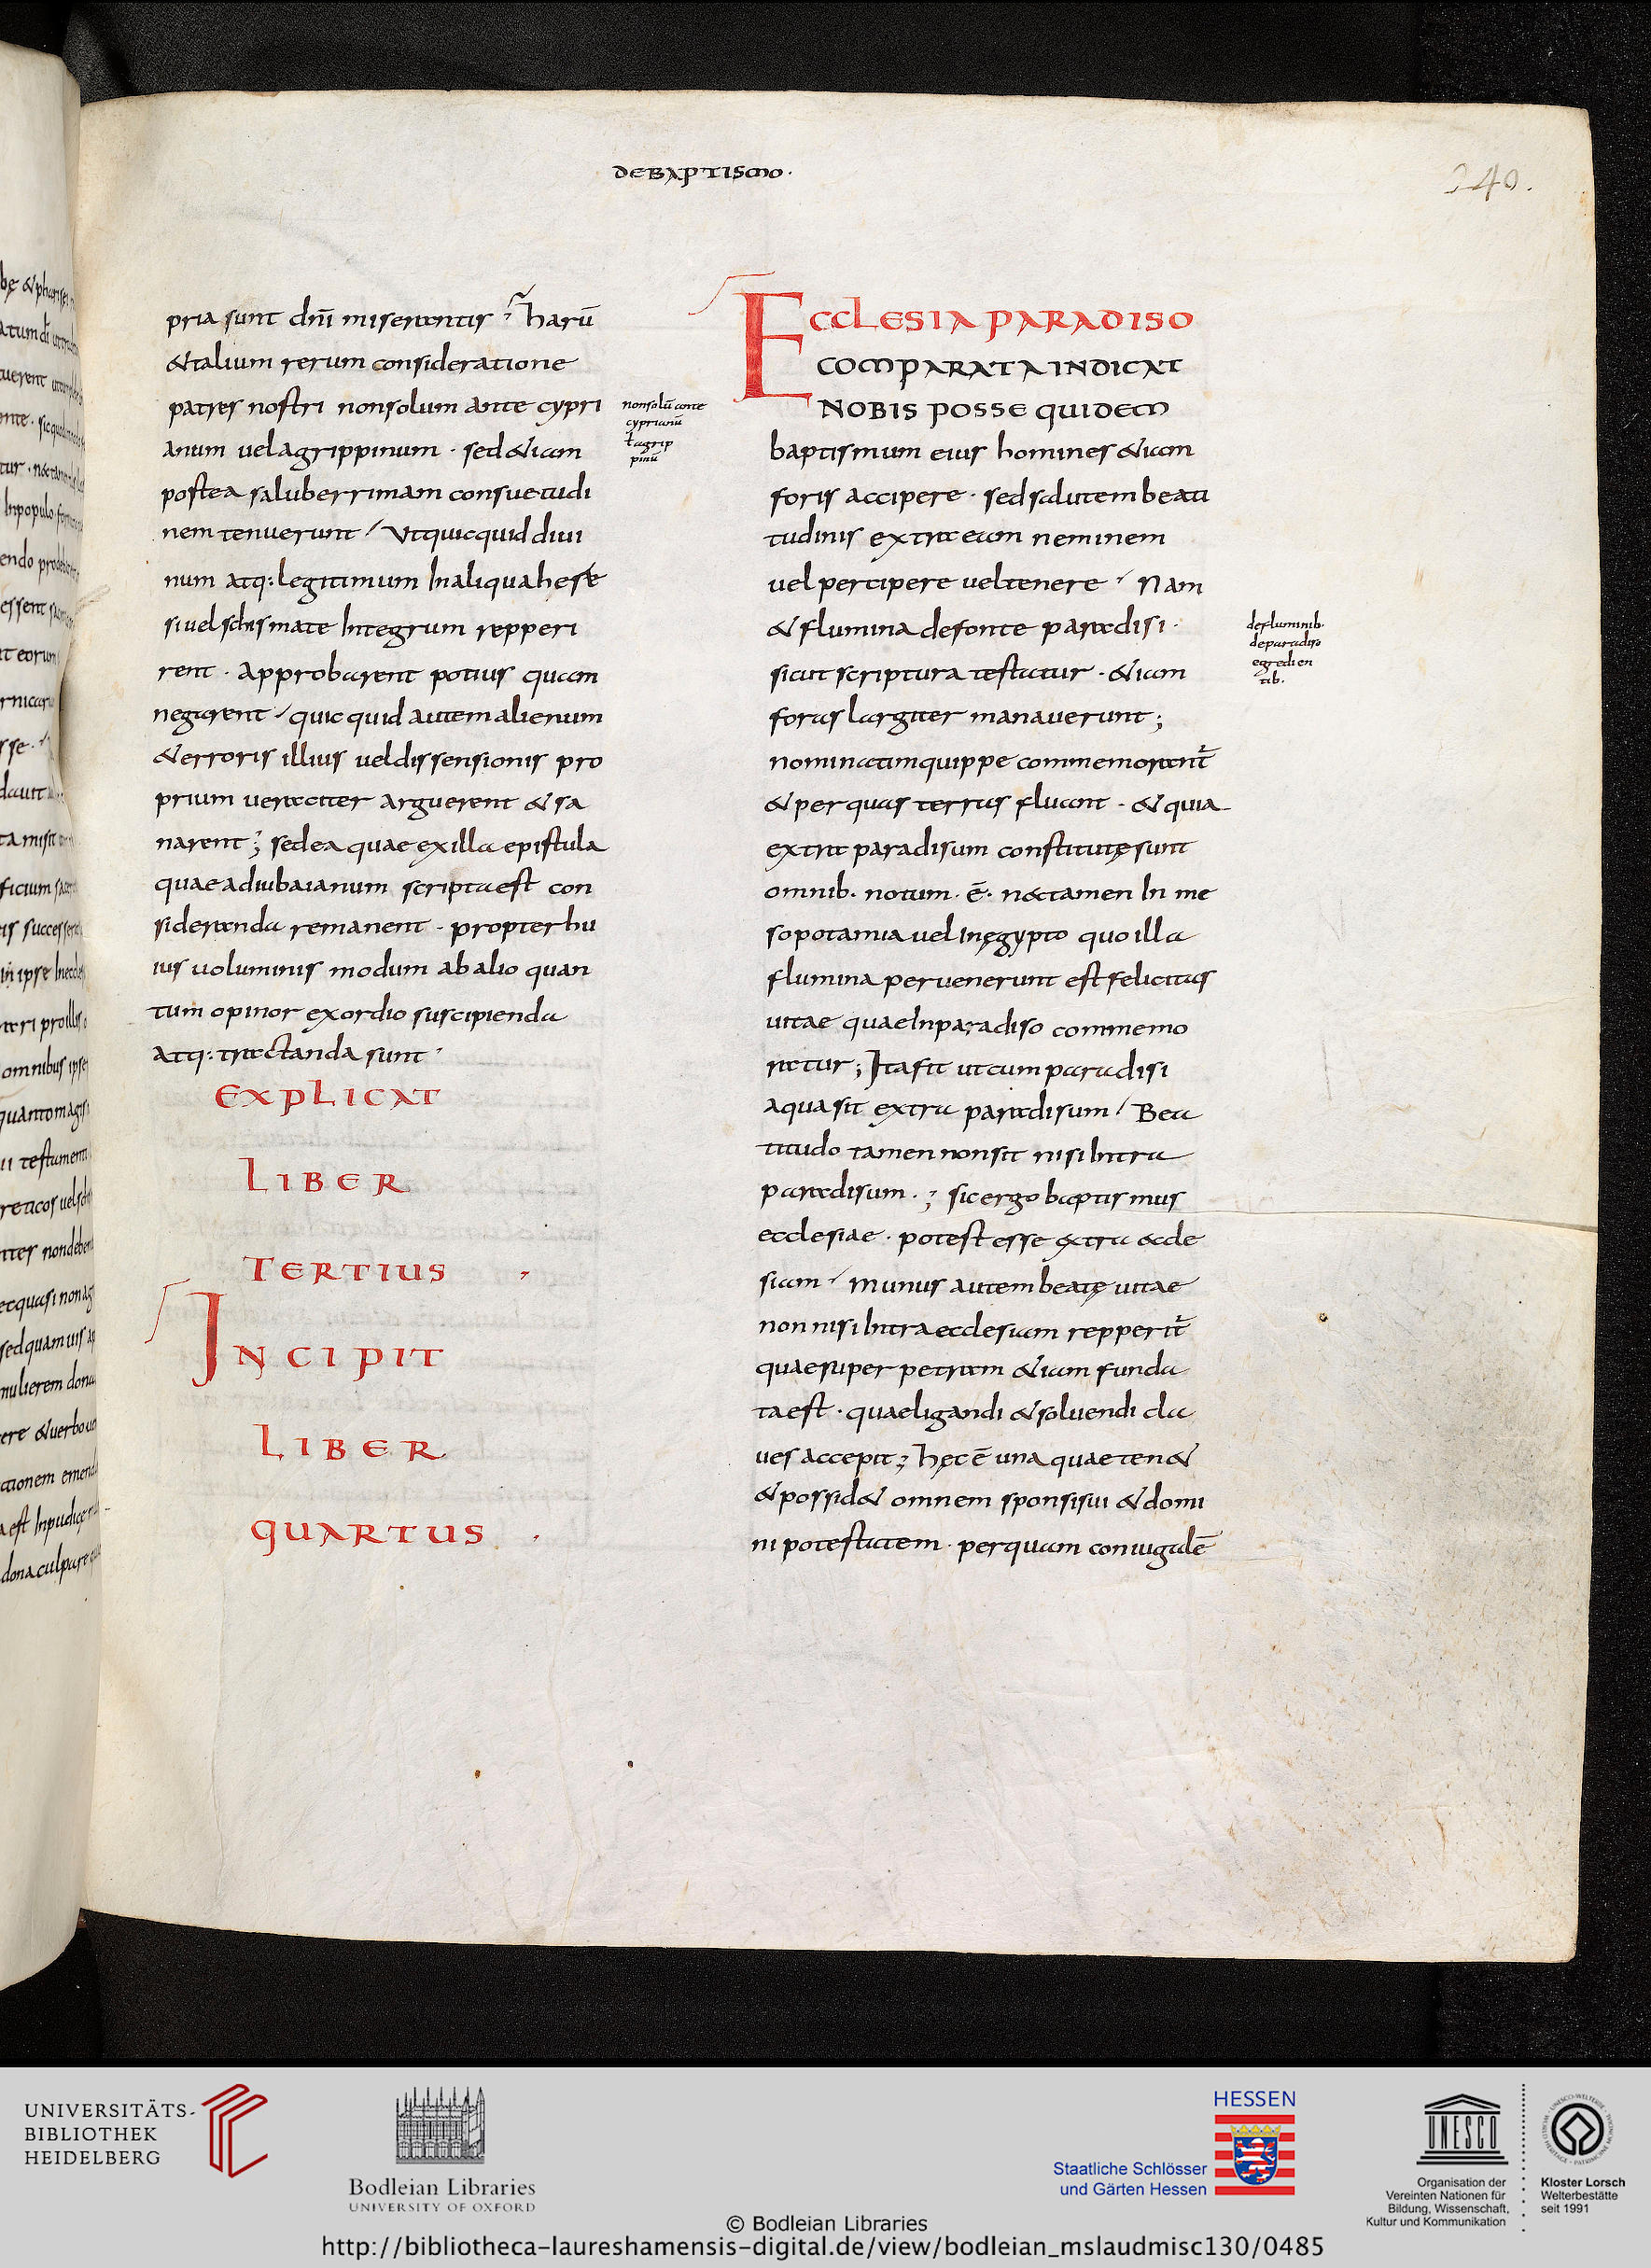 DE BAPTISMO·
240.
pria sunt dnī miserantis ; harū
& talium rerum consideratione
patres nostri non solum ante cypri
anum uel agrippinum · sed & iam
postea saluberrimam consuetudi
nem tenuerunt / Ut quicquid diui
num atq: legitimum In aliqua here
si uel schismate Integrum repperi
rent · approbarent potius quam
negarent / quicquid autem alienum
& erroris illius uel dissensionis pro
prium ueraciter arguerent & sa
narent ; sed ea quae ex illa epistula
quae ad iubaianum scripta est con
sideranda remanent · propter hu
ius uoluminis modum ab alio quan
tum opinor exordio suscipienda
atq: tractanda sunt ·
EXPLICAT
LIBER
TERTIUS ,
INCIPIT
LIBER
QUARTUS .
non solū ante
cyprianū
ł agrip
pinū
ECCLESIA PARADISO
COMPARATA INDICAT
NOBIS POSSE QUIDEM
baptismum eius homines & iam
foris accipere · sed salutem beati
tudinis extra eam neminem
uel percipere uel tenere / Nam
& flumina de fonte paradisi ·
sicut scriptura testatur · & iam
foras largiter manauerunt ;
nominatim quippe commemorant᷑
& per quas terras fluant · & quia
extra paradisum constitutę sunt
omnib· notum · ē · nec tamen In me
sopotamia uel In ęgypto quo illa
flumina peruenerunt est felicitas
uitae quae In paradiso commemo
ratur ; Ita fit ut cum paradisi
aqua sit extra paradisum / Bea
titudo tamen non sit nisi Intra
paradisum · ; sic ergo baptismus
ecclesiae · potest esse extra eccle
siam / munus autem beatę uitae
non nisi Intra ecclesiam repperit᷑
quae super petram & iam funda
ta est · quae ligandi & soluendi cla
ues accepit ; hęc ē una quae ten&
& possid& omnem sponsi sui & domi
ni potestatem · per quam coniugalē
de fluminib·
de paradiso
egredien
tib·
UNIVERSITÄTS-
BIBLIOTHEK
HEIDELBERG
Bodleian Libraries
UNIVERSITY OF OXFORD
HESSEN
Staatliche Schlösser
und Gärten Hessen
UNESCO
Organisation der
Vereinten Nationen für
Bildung, Wissenschaft,
Kultur und Kommunikation
Kloster Lorsch
Welterbestätte
seit 1991
© Bodleian Libraries
http://bibliotheca-laureshamensis-digital.de/view/bodleian_mslaudmisc130/0485